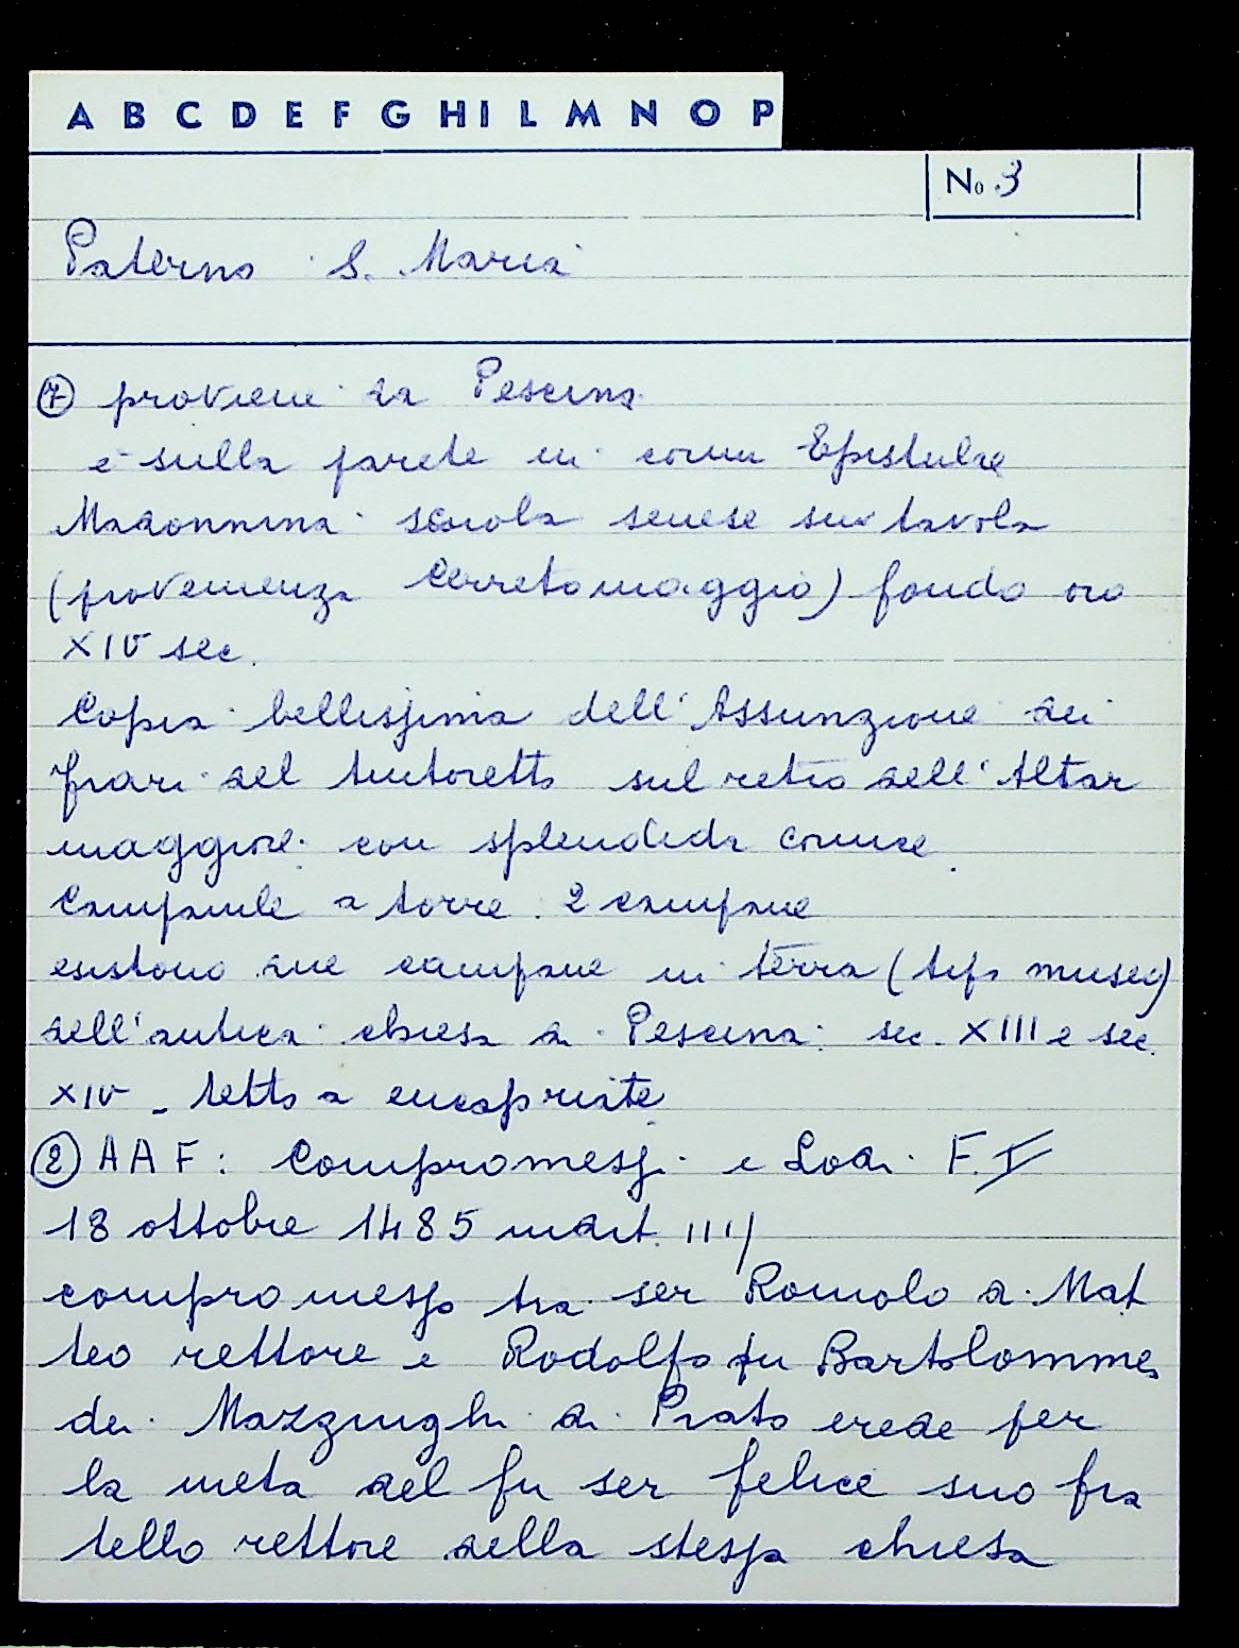 A B C D E F G H I L M N O P
No. 3
Paterno S. Maria
⑦ proviene da Pescina
è sulla parete in cornu Epistulae
Madonnina scuola senese su tavola
(provenienza Cerretomaggio) fondo oro
XIV sec.
Copia bellissima dell'Assunzione dei
frari del tintoretto sul retro dell'Altar
maggiore con splendida cornice.
Campanile a torre. 2 campane
esistono due campane in terra (tipo museo)
dell'antica chiesa di Pescina: sec. XIII e sec.
XIV - tetto a encapriate
② AAF: Compromessi e Lodi F. I
18 ottobre 1485 indit. III/
compromesso tra ser Romolo di Mat
teo rettore e Rodolfo fu Bartolommeo
dei Mazzinghi di Prato erede per
la metà del fu ser felice suo fra
tello rettore della stessa chiesa